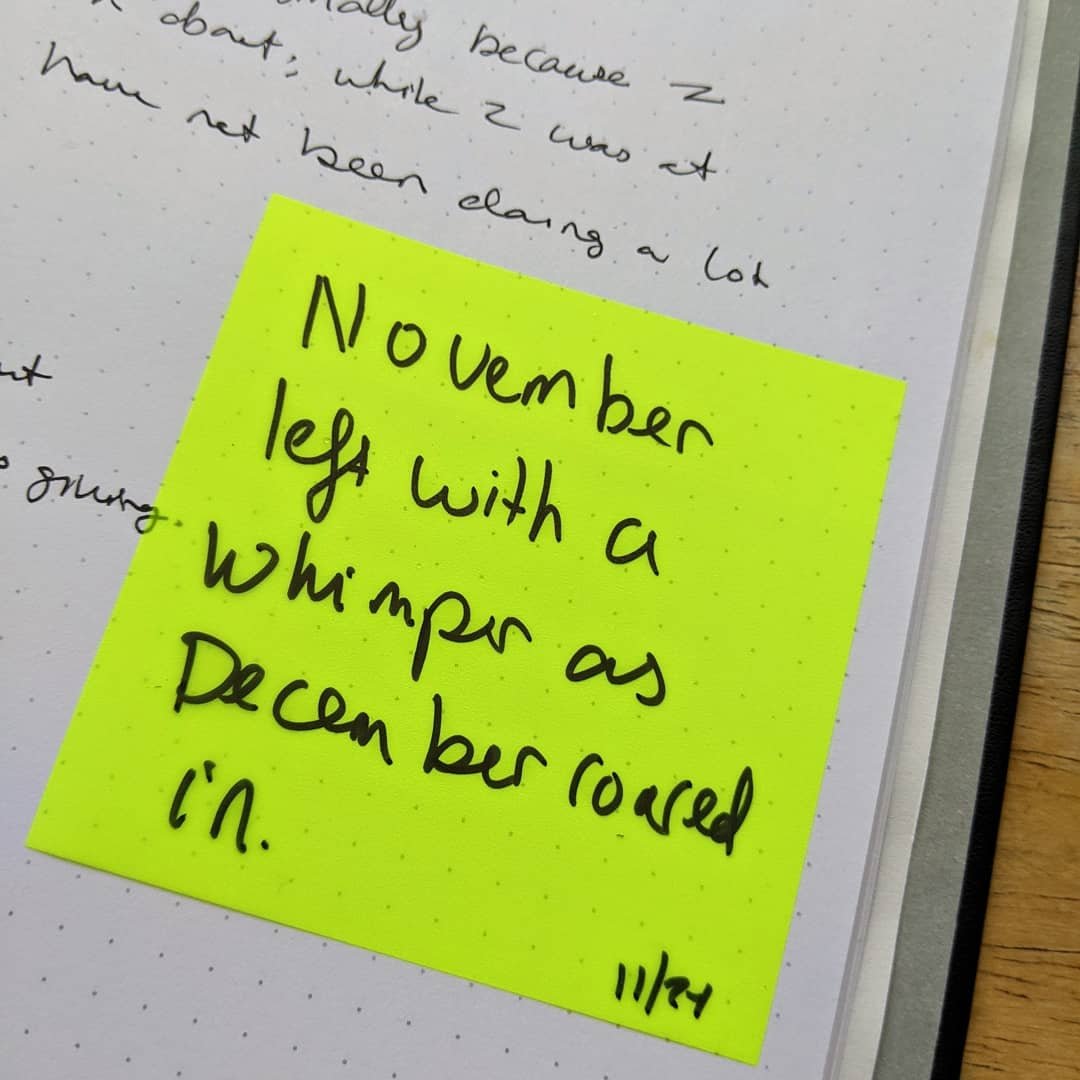 because I
about; while I was at
have not been doing a lot
November
left with a
whimper as
December roared
in.
11/24